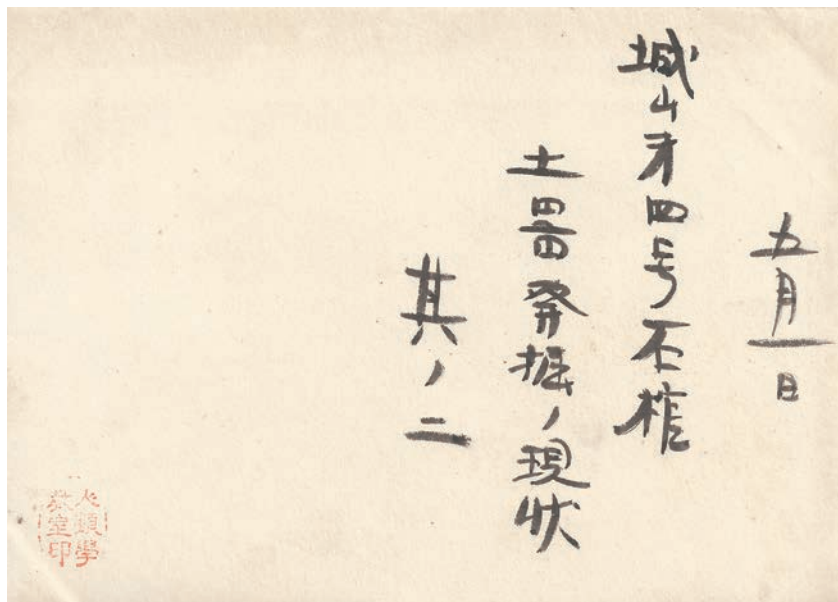 五月一日
城山才四号石棺
土器発掘ノ現状
其ノ二
人類學
教室印